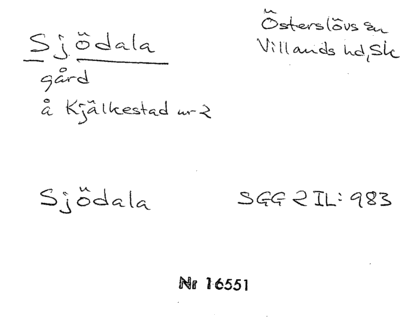 Sjödala
Österslövs sn
Villands hd, Sk
gård
å Kjälkestad nr 2
Sjödala
SGG 2 IL: 983
Nr 16551